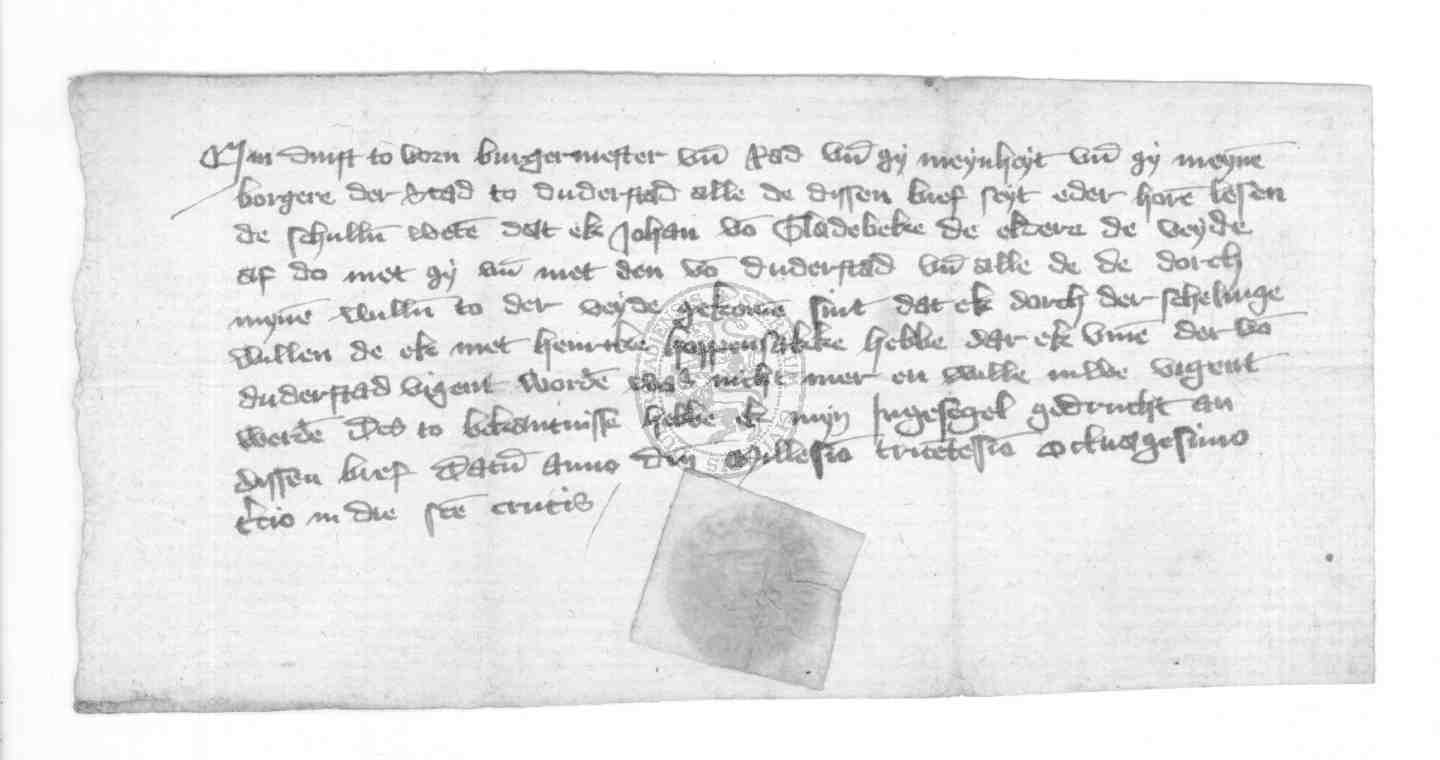 Min dinst to vorn burgermester vn̄ Rad vn̄ gy meynheyt vn̄ gy meyne̅
borgere der Stad to duderstad alle de dyssen bref seyt eder hore̅ lesen
de schullu̅ wete̅ dat ek Johan vo̅ Gladebeke de eldere de veyde
af do met gy vn̄ met den vo̅ duderstad vn̄ alle de de dorch
myne̅ wullu̅ to der veyde gekome̅ sint dat ek dorch der schelinge
willen de ek met henrike hebbe dar ek vm̄e der vo̅
duderstad vigent worde̅ was nicht mer en wille vigent
werde̅ Des to bekantnisse hebbe ek myn Ingesegel gedrucht an
dyssen bref Datu̅ anno dn̄i Millesi̅o tricetesi̅o octuagesimo
t̅cio in die sc̅e crucis